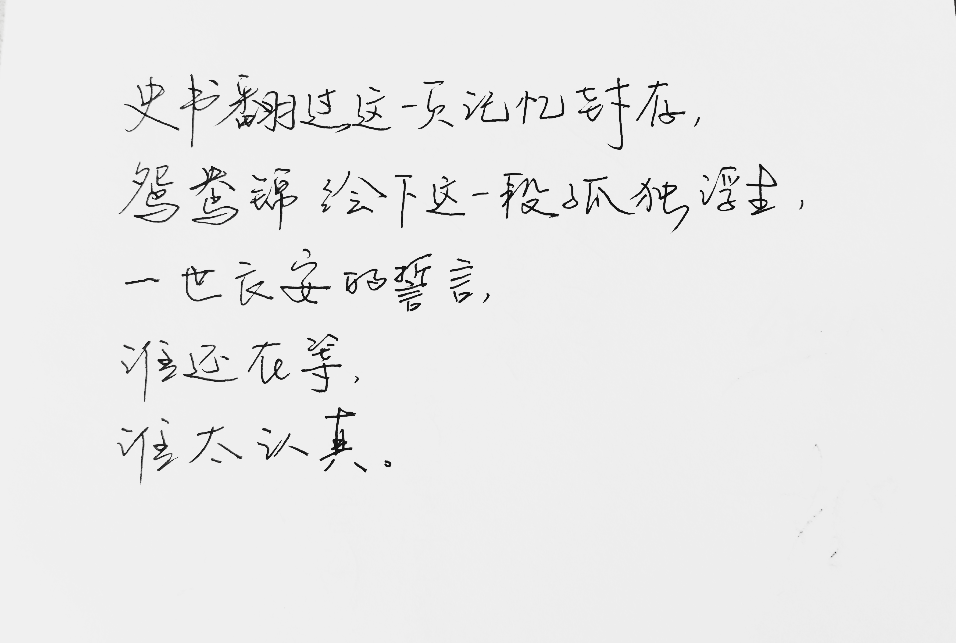 史书翻过这一页记忆封存,
鸳鸯锦绘下这一段孤独浮生,
一世长安的誓言,
谁还在等,
谁太认真。